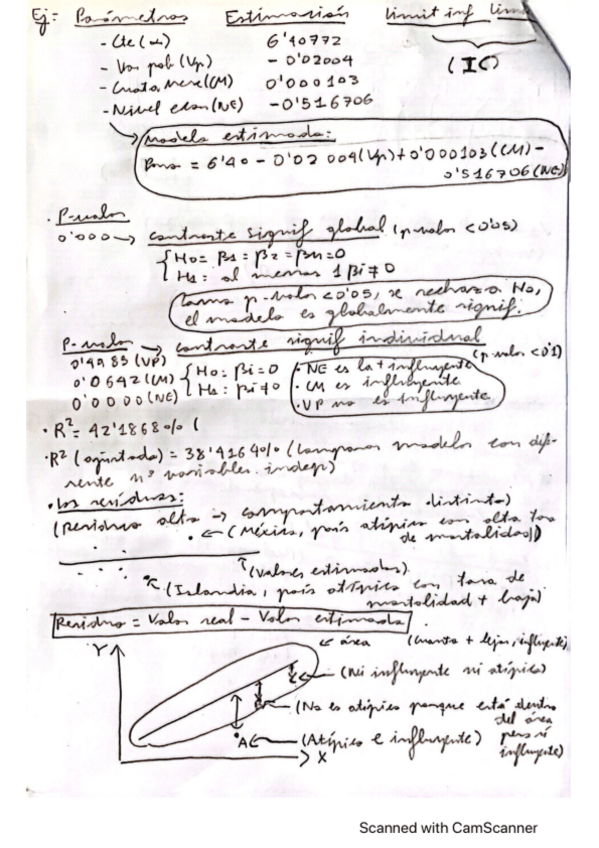 Ej: Parámetros Estimación Limit inf Lim
- Cte (α) 6'40772
- Var pob (Vp) - 0'02004
- Cuota Merc (CM) 0'000103
- Nivel econ (NE) -0'516706
(IC)
Modelo estimado:
= 6'40 - 0'02004(Vp) + 0'000103(CM) -
0'516706(NE)
· P-valor
0'000 → contraste signif global (p-valor < 0'05)
H0 = β1 = β2 = βn = 0
H1 : al menos 1 βi ≠ 0
Como p-valor < 0'05, se rechaza H0,
el modelo es globalmente signif.
P-valor → contraste signif individual
(p-valor < 0'1)
0'4983 (VP)
0'0642 (CM)
0'0000 (NE)
H0 : βi = 0
H1 : βi ≠ 0
· NE es la + influyente
· CM es influyente
· VP no es influyente
· R² = 42'1868% (
· R² (ajustado) = 38'4164% (comparar modelos con dife-
rente nº variables indep)
· Los residuos:
(Residuo alto → comportamiento distinto)
← (México, país atípico con alta tasa
de mortalidad)
(Valores estimados)
(Islandia, país atípico con tasa de
mortalidad + baja)
Residuo = Valor real - Valor estimado
Y ← área (cuanto + lejos, influyente)
(Ni influyente ni atípico)
(No es atípico porque está dentro
del área
pero sí
influyente)
A ← (Atípico e influyente)
X
Scanned with CamScanner